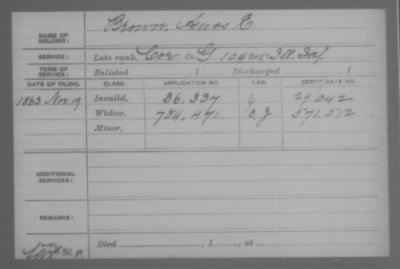 NAME OF SOLDIER: Brown, Amos E
SERVICE: Late rank, Cor Co G 124 Reg't Ill. Inf
TERM OF SERVICE: Enlisted , 1 Discharged , 1
DATE OF FILING. CLASS. APPLICATION NO. LAW. CERTIFICATE NO.
1863 Nov. 19 Invalid, 36.337 29.042
Widow, 784.471 O.L 571.372
Minor,
ADDITIONAL SERVICES:
REMARKS:
Died , 1 , at